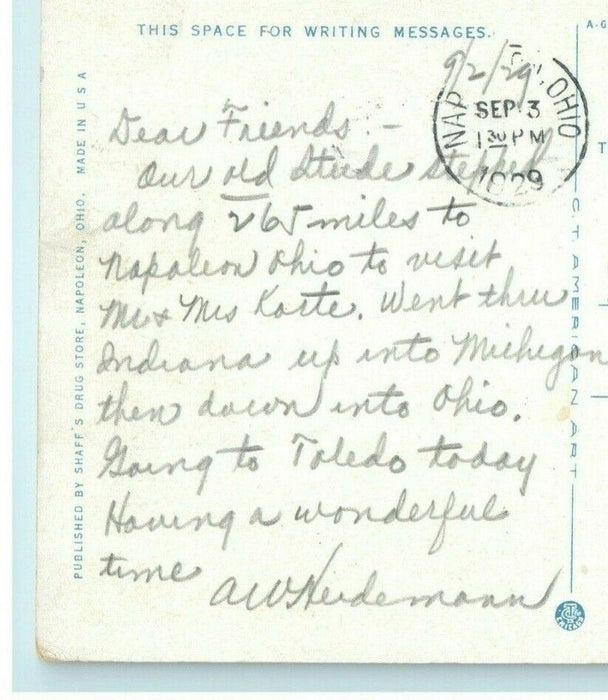 THIS SPACE FOR WRITING MESSAGES.
A.G
9/2/29
NAP OHIO
SEP 3
1 30 PM
1929
Dear Friends. -
Our old Stude stepped
along 265 miles to
Napoleon Ohio to visit
Mr & Mrs Korte. Went thru
Indiana up into Michigan
then down into Ohio.
Going to Toledo today
Having a wonderful
time
AW Heidemann
PUBLISHED BY SHAFF'S DRUG STORE, NAPOLEON, OHIO. MADE IN U S A
C. T. AMERICAN ART
T
CHICAGO